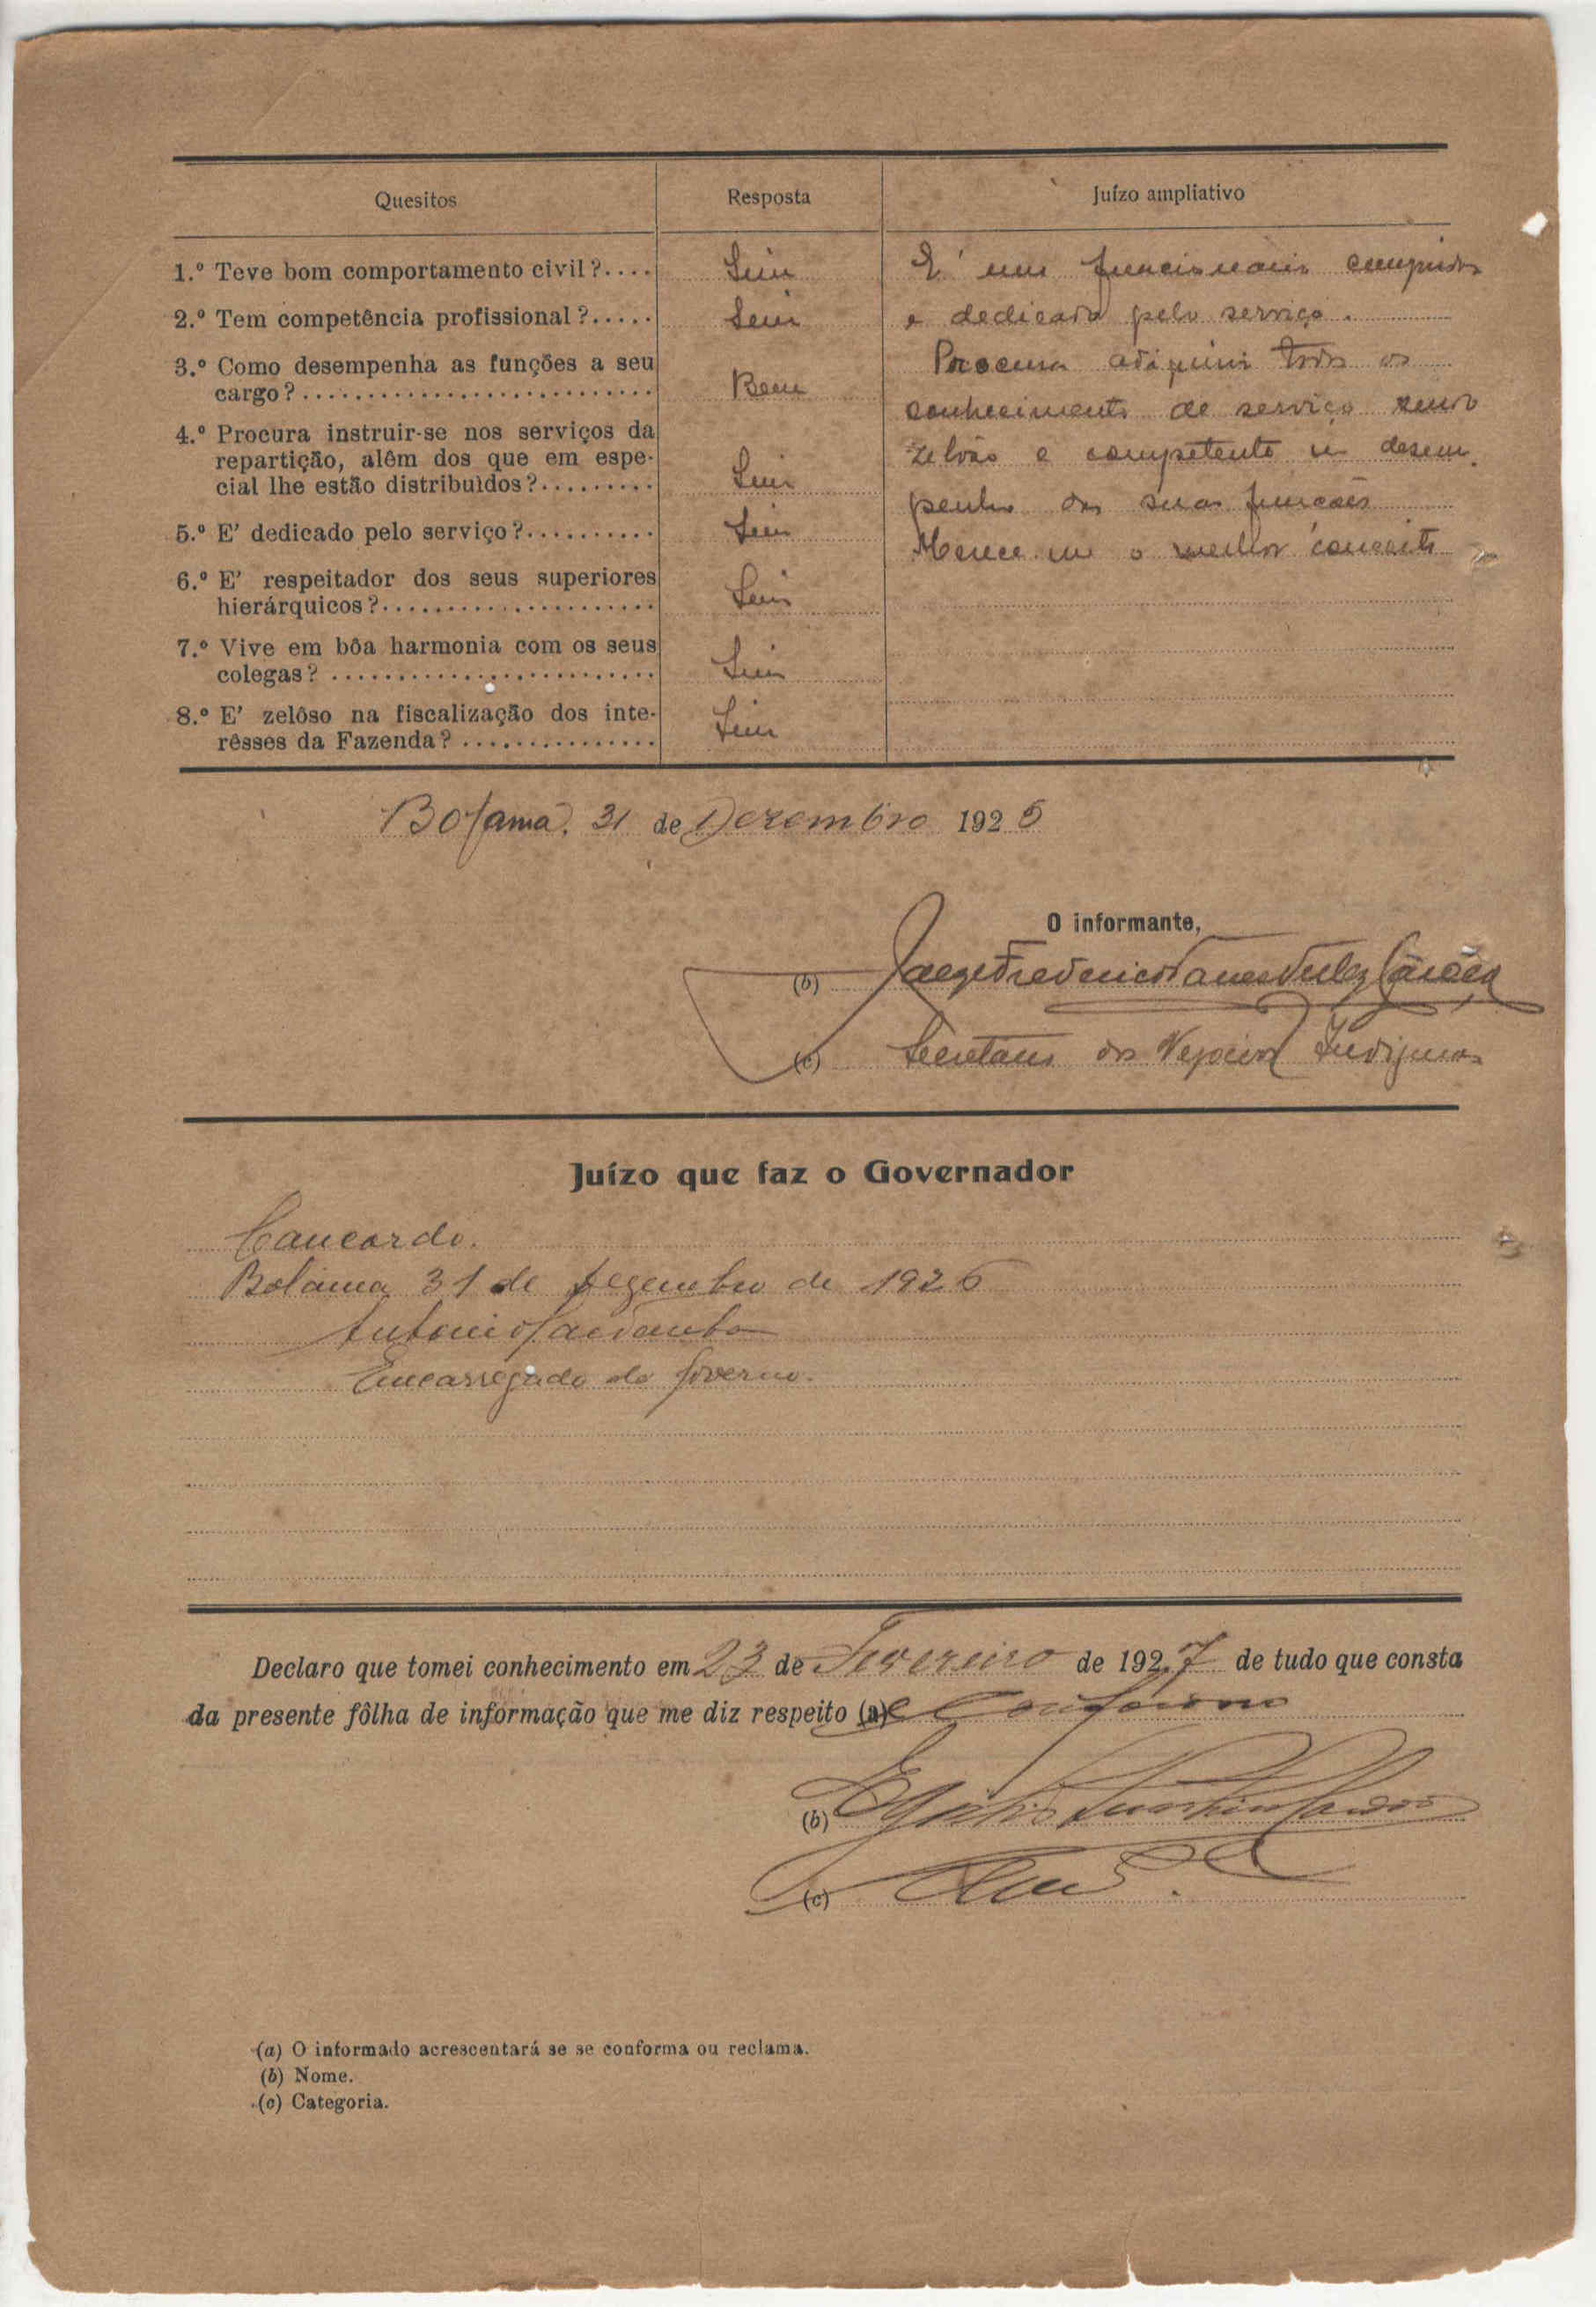 Quesitos
Resposta
Juízo ampliativo
1.º Teve bom comportamento civil?....
Sim
2.º Tem competência profissional?.....
Sim
3.º Como desempenha as funções a seu
cargo?...........................
Bem
4.º Procura instruir-se nos serviços da
repartição, alêm dos que em espe-
cial lhe estão distribuìdos?.........
Sim
5.º E' dedicado pelo serviço?..........
Sim
6.º E' respeitador dos seus superiores
hierárquicos?.....................
Sim
7.º Vive em bôa harmonia com os seus
colegas?.........................
Sim
8.º E' zelôso na fiscalização dos inte-
rêsses da Fazenda?...............
Sim
E' um funcionario cumpridor
e dedicado pelo serviço.
Procura adquirir todos os
conhecimentos de serviço sendo
zeloso e competente no desem-
penho das suas funcões
Merece-me o melhor conceito
Bolama, 31 de Dezembro 1926
O informante,
(b) Jorge Frederico
(c) Secretario dos Negocios Indigenas
Juízo que faz o Governador
Concordo.
Bolama 31 de dezembro de 1926
Antonio
Encarregado do Governo.
Declaro que tomei conhecimento em 23 de Fevereiro de 1927 de tudo que consta
da presente fôlha de informação que me diz respeito (a) e conformo
(b)
(c)
(a) O informado acrescentará se se conforma ou reclama.
(b) Nome.
(c) Categoria.